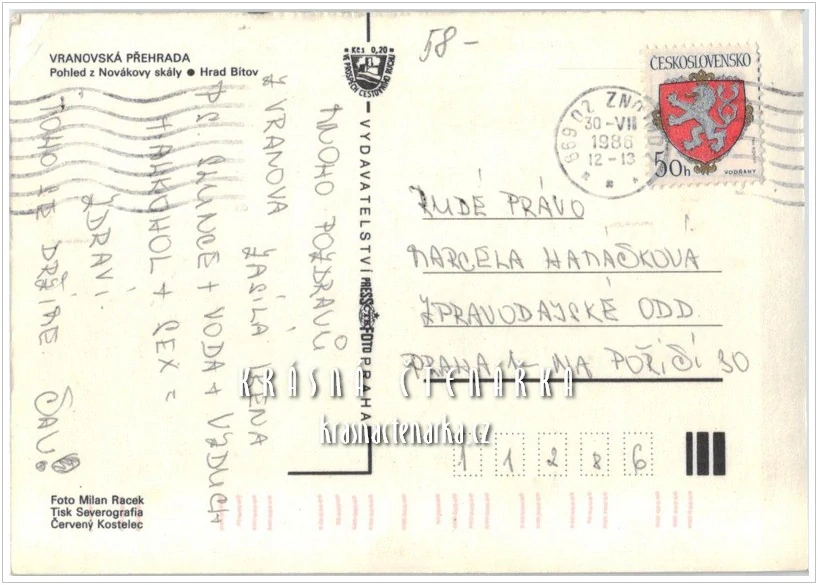 VRANOVSKÁ PŘEHRADA
Pohled z Novákovy skály ● Hrad Bítov
58-
Kčs 0,20
VE PROSPĚCH CESTOVNÍHO RUCHU
ČESKOSLOVENSKO
50h
VODŇANY
669 02 ZNOJMO
30-VII
1986
12-13
MNOHO POZDRAVŮ
Z VRANOVA
ZASÍLÁ
P.S. SLUNCE + VODA + VZDUCH
+ALKOHOL + SEX =
ZDRAVÍ.
TOHO SE DRŽÍME
VYDAVATELSTVÍ PRESSFOTO PRAHA
RUDÉ PRÁVO
MARCELA HANÁŠKOVÁ
ZPRAVODAJSKÉ ODD.
PRAHA 1- NA POŘÍČÍ 30
KRÁSNÁ ČTENÁŘKA
krasnactenarka.cz
1 1 2 8 6
Foto Milan Racek
Tisk Severografia
Červený Kostelec